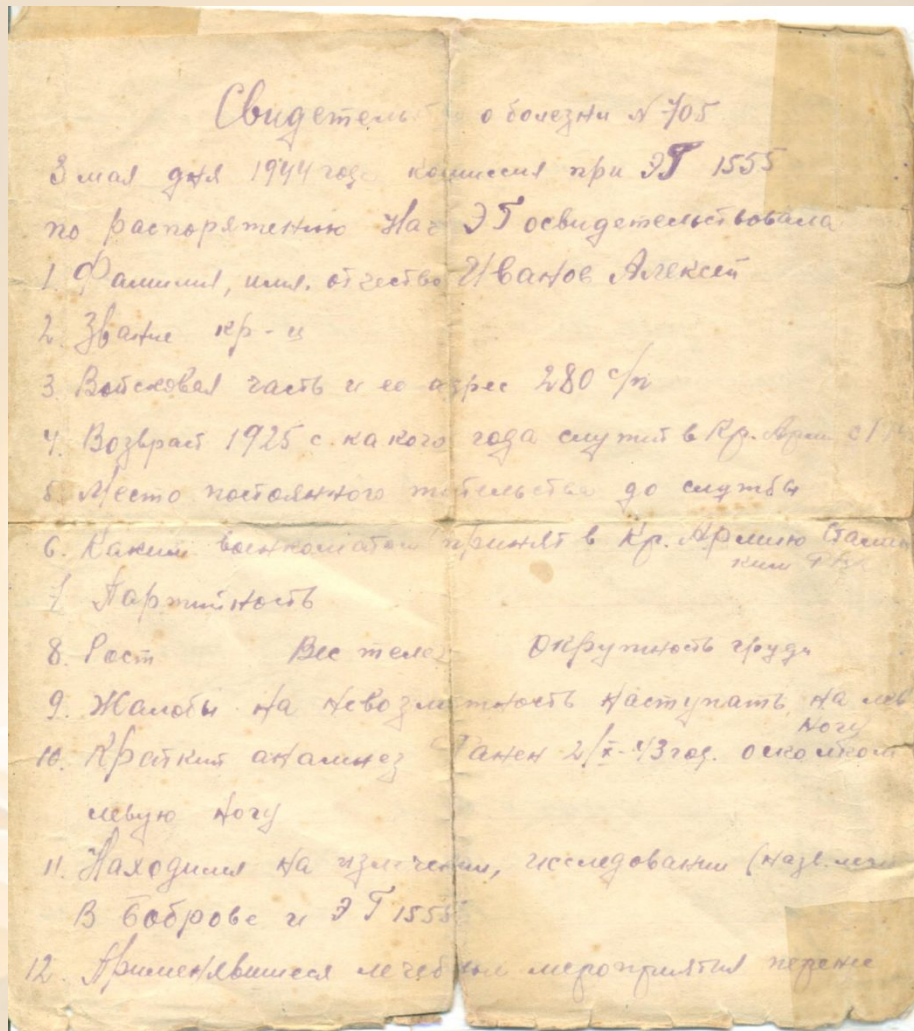 Свидетельс о болезни N 705
3 мая дня 1944 года комиссия при ЭГ 1555
по распоряжению Нач ЭГ освидетельствовала
1. Фамилия, имя, отчество Иванов Алексей
2. Звание кр-ц
3. Войсковая часть и ее адрес 280 с/п
4. Возраст 1925 с какого года служит в Кр. Арми с
5. Место постоянного жительства до службы
6. Каким военкоматом принят в Кр. Армию Сталин
ким
7. Партийность
8. Рост Вес тела Окружность груди
9. Жалобы на невозможность наступать на лев
ногу
10. Краткий анамнез Ранен 2/X-43 год. осколком
левую ногу
11. Находился на излечении, исследовании (назв. леч
В Боброве и ЭГ 1555
12. Применявшиеся лечебные мероприятия перене